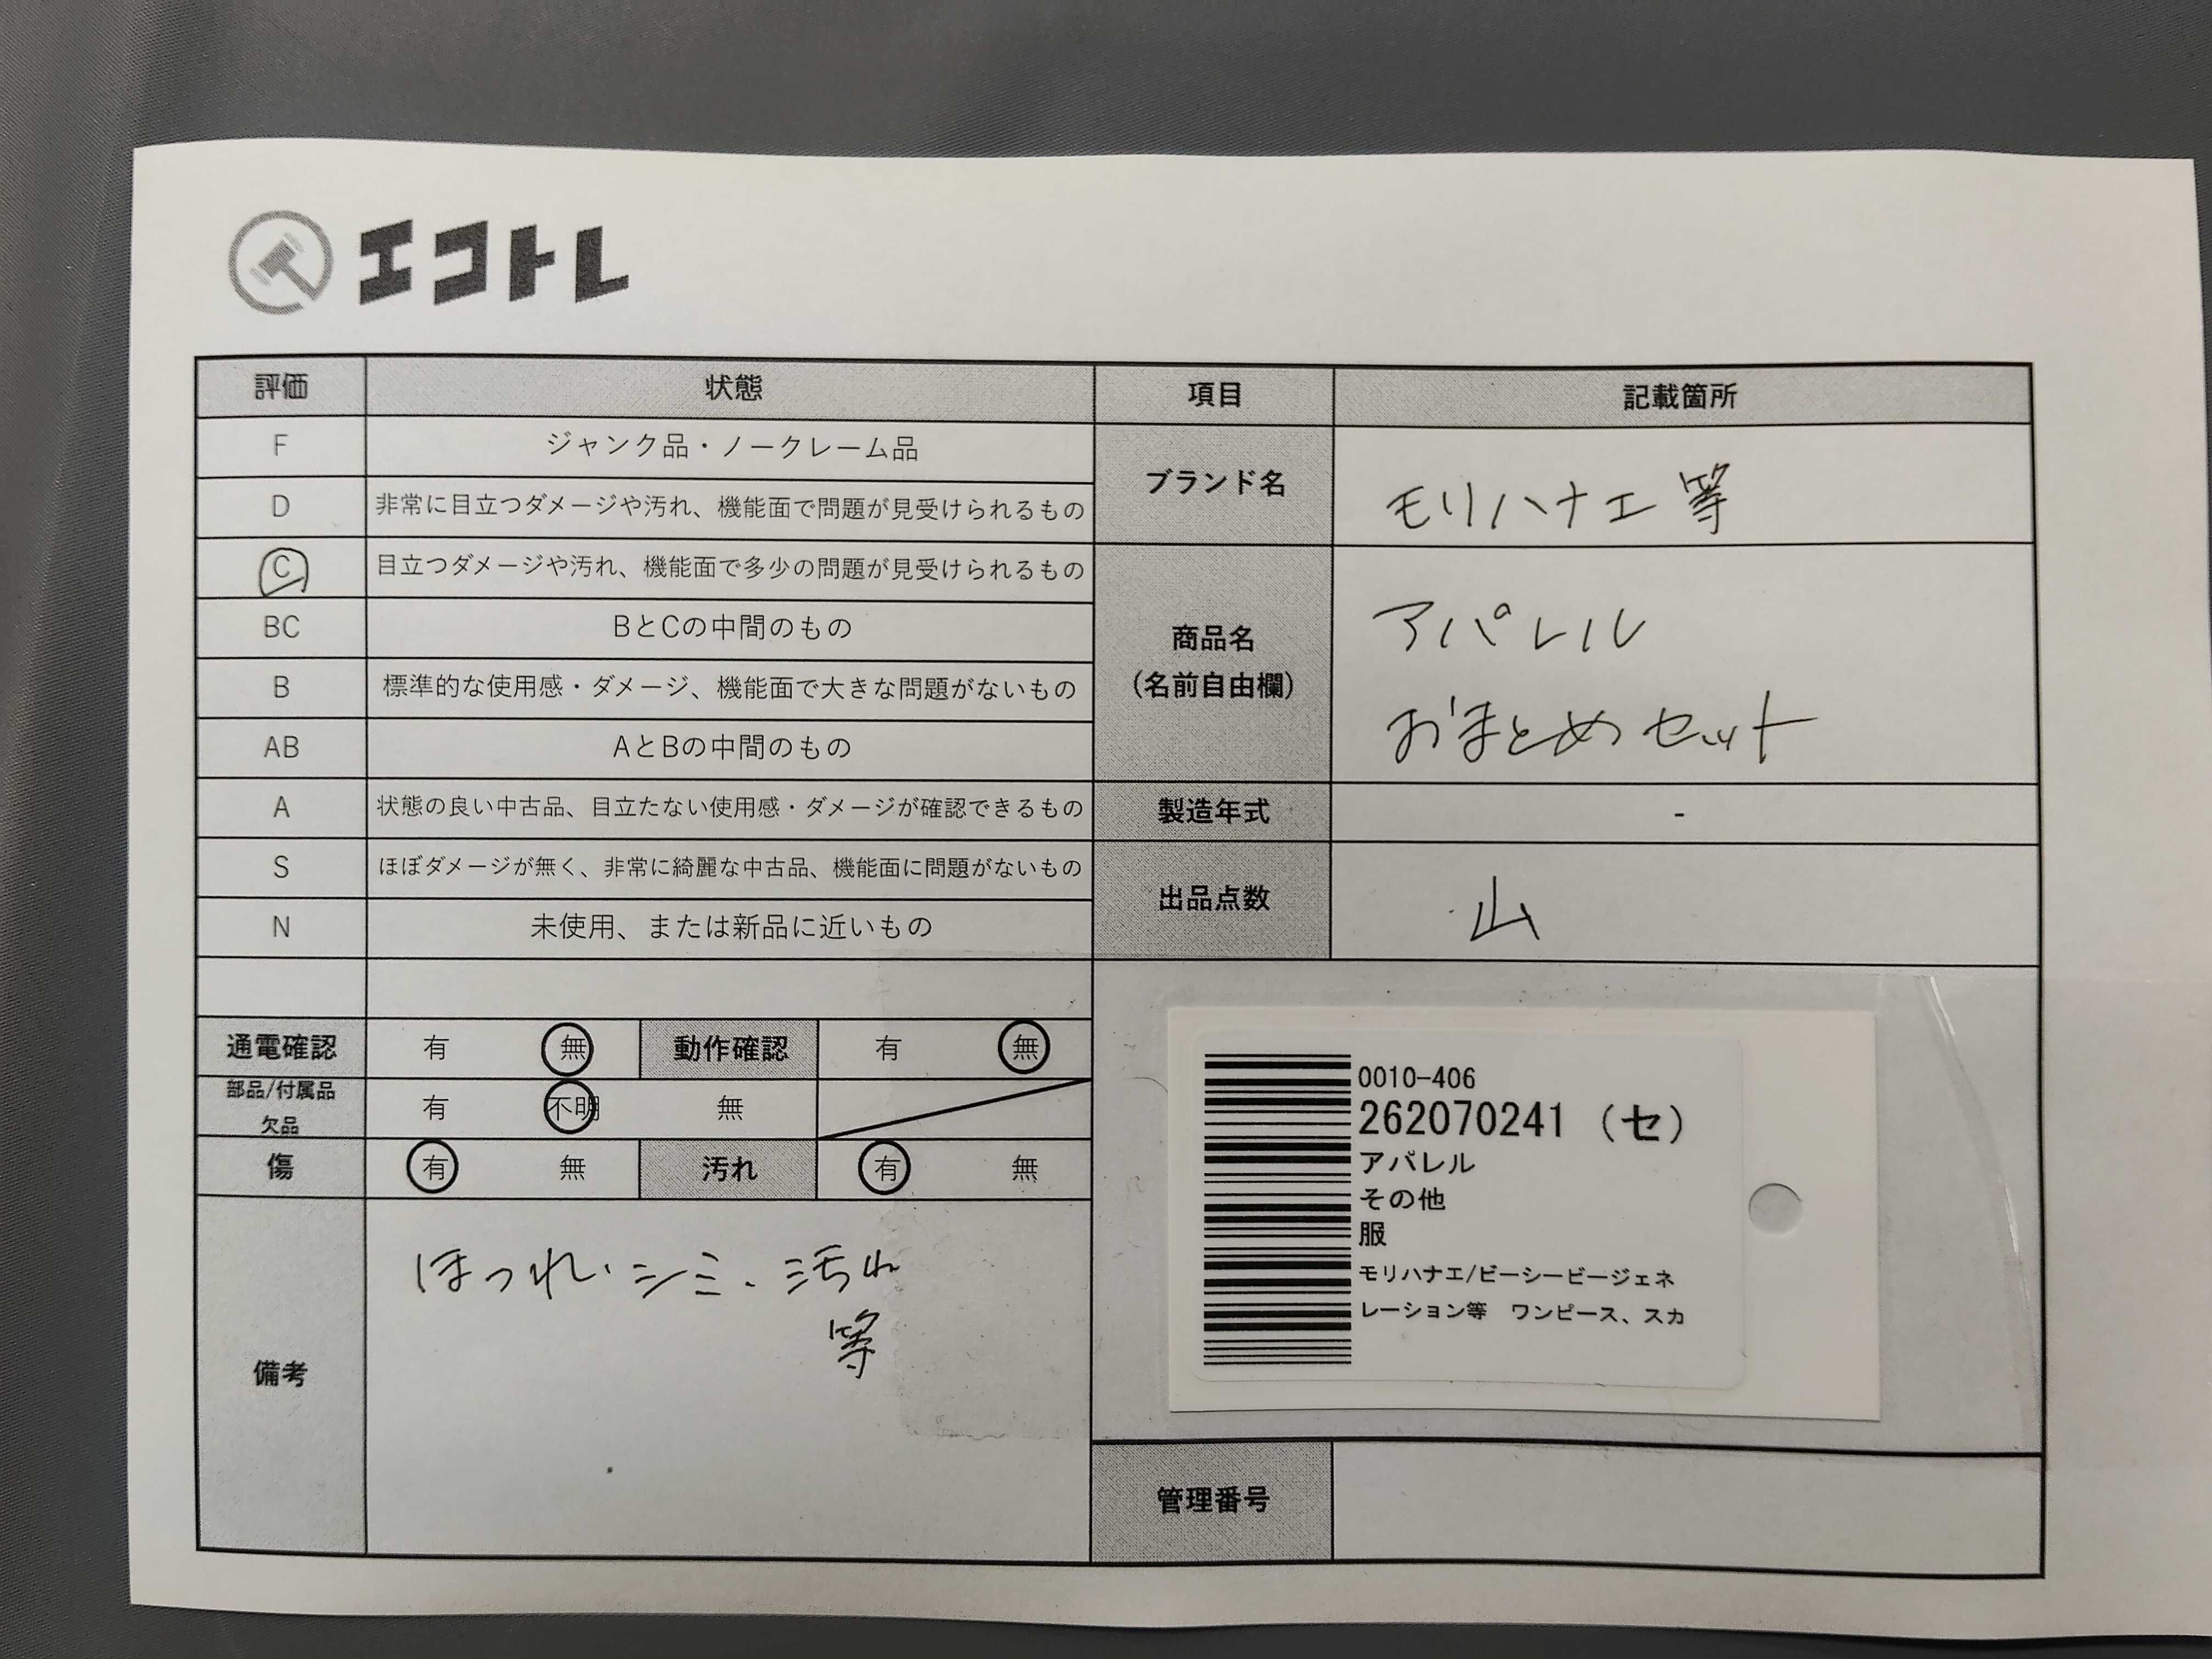 エコトレ
評価 状態 項目 記載箇所
F ジャンク品・ノークレーム品
D 非常に目立つダメージや汚れ、機能面で問題が見受けられるもの
C 目立つダメージや汚れ、機能面で多少の問題が見受けられるもの
BC BとCの中間のもの
B 標準的な使用感・ダメージ、機能面で大きな問題がないもの
AB AとBの中間のもの
A 状態の良い中古品、目立たない使用感・ダメージが確認できるもの
S ほぼダメージが無く、非常に綺麗な中古品、機能面に問題がないもの
N 未使用、または新品に近いもの
ブランド名 モリハナエ等
商品名
(名前自由欄)
アパレル
おまとめセット
製造年式 -
出品点数 山
通電確認 有 無 動作確認 有 無
部品/付属品
欠品
有 不明 無
傷 有 無 汚れ 有 無
備考
ほつれ・シミ・汚れ
等
0010-406
262070241 (セ)
アパレル
その他
服
モリハナエ/ビーシービージェネ
レーション等 ワンピース、スカ
管理番号